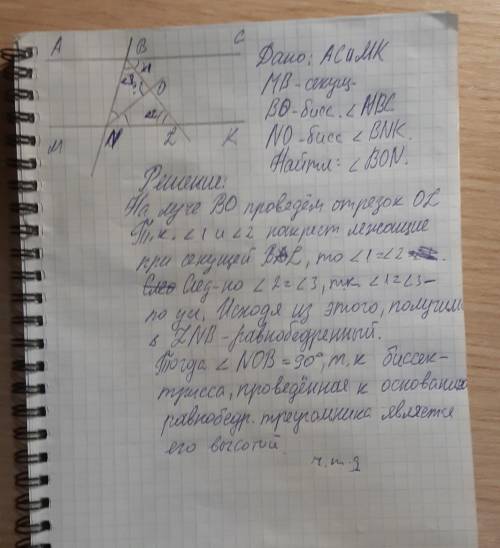 A B C
1
3 O
2
M N L K
Дано: AC || MK
MB - секущ.
BO - бисс. ∠MBC
NO - бисс ∠BNK.
Найти: ∠BON.
Решение:
На луче BO проведём отрезок OL
Т.к. ∠1 и ∠2 накрест лежащие
при секущей BL, то ∠1=∠2
След-но ∠2=∠3, т.к ∠1=∠3 -
по усл. Исходя из этого, получим
LNB - равнобедренный.
Тогда ∠NOB = 90°, т.к биссек-
трисса, проведённая к основанию
равнобедр. треугольника является
его высотой.
ч.т.д